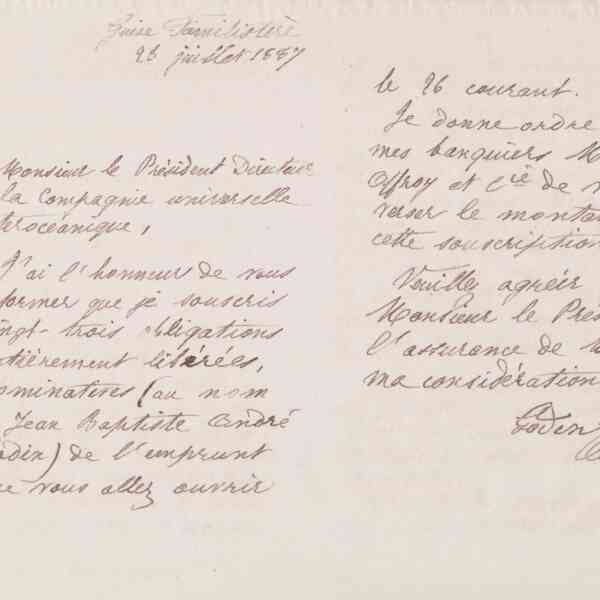 Guise Familistère
23 juillet 1887
Monsieur le Président Directeur
la Compagnie universelle
terocéanique,
J'ai l'honneur de vous
former que je souscris
ingt-trois obligations
tièrement libérées,
ominatives (au nom
Jean Baptiste André
odin) de l'emprunt
e vous allez ouvrir
le 26 courant.
Je donne ordre
mes banquiers M
Offroy et Cie de v
verser le monta
cette souscription
Veuillez agréer
Monsieur le Prés
l'assurance de
ma considération
Godin